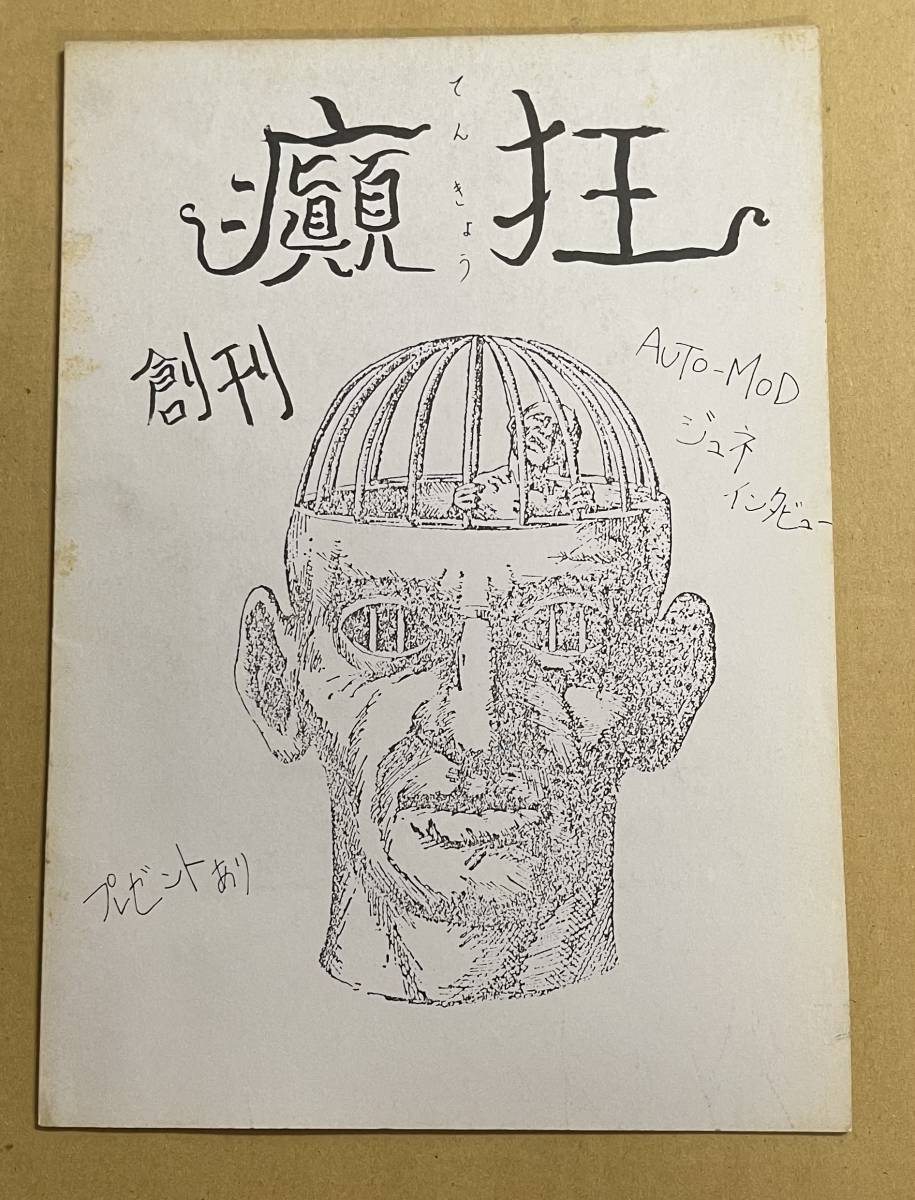 癲狂
てんきょう
創刊
AUTO-MOD
ジュネ
インタビュー
プレゼントあり